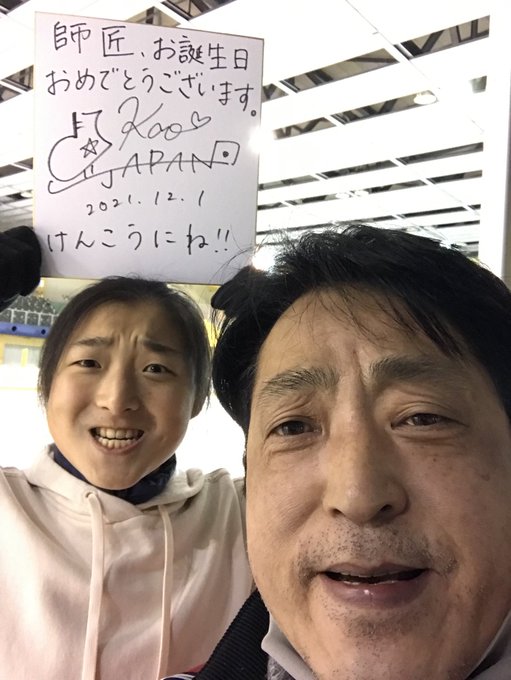 師匠、お誕生日
おめでとうございます。
Kao♡
JAPAN
2021.12.1
けんこうにね!!